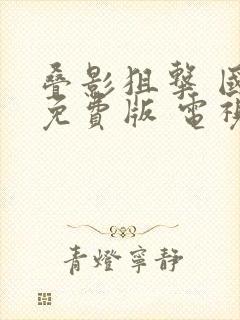 叠影狙擊 國
免費版 電視
青燈寧靜